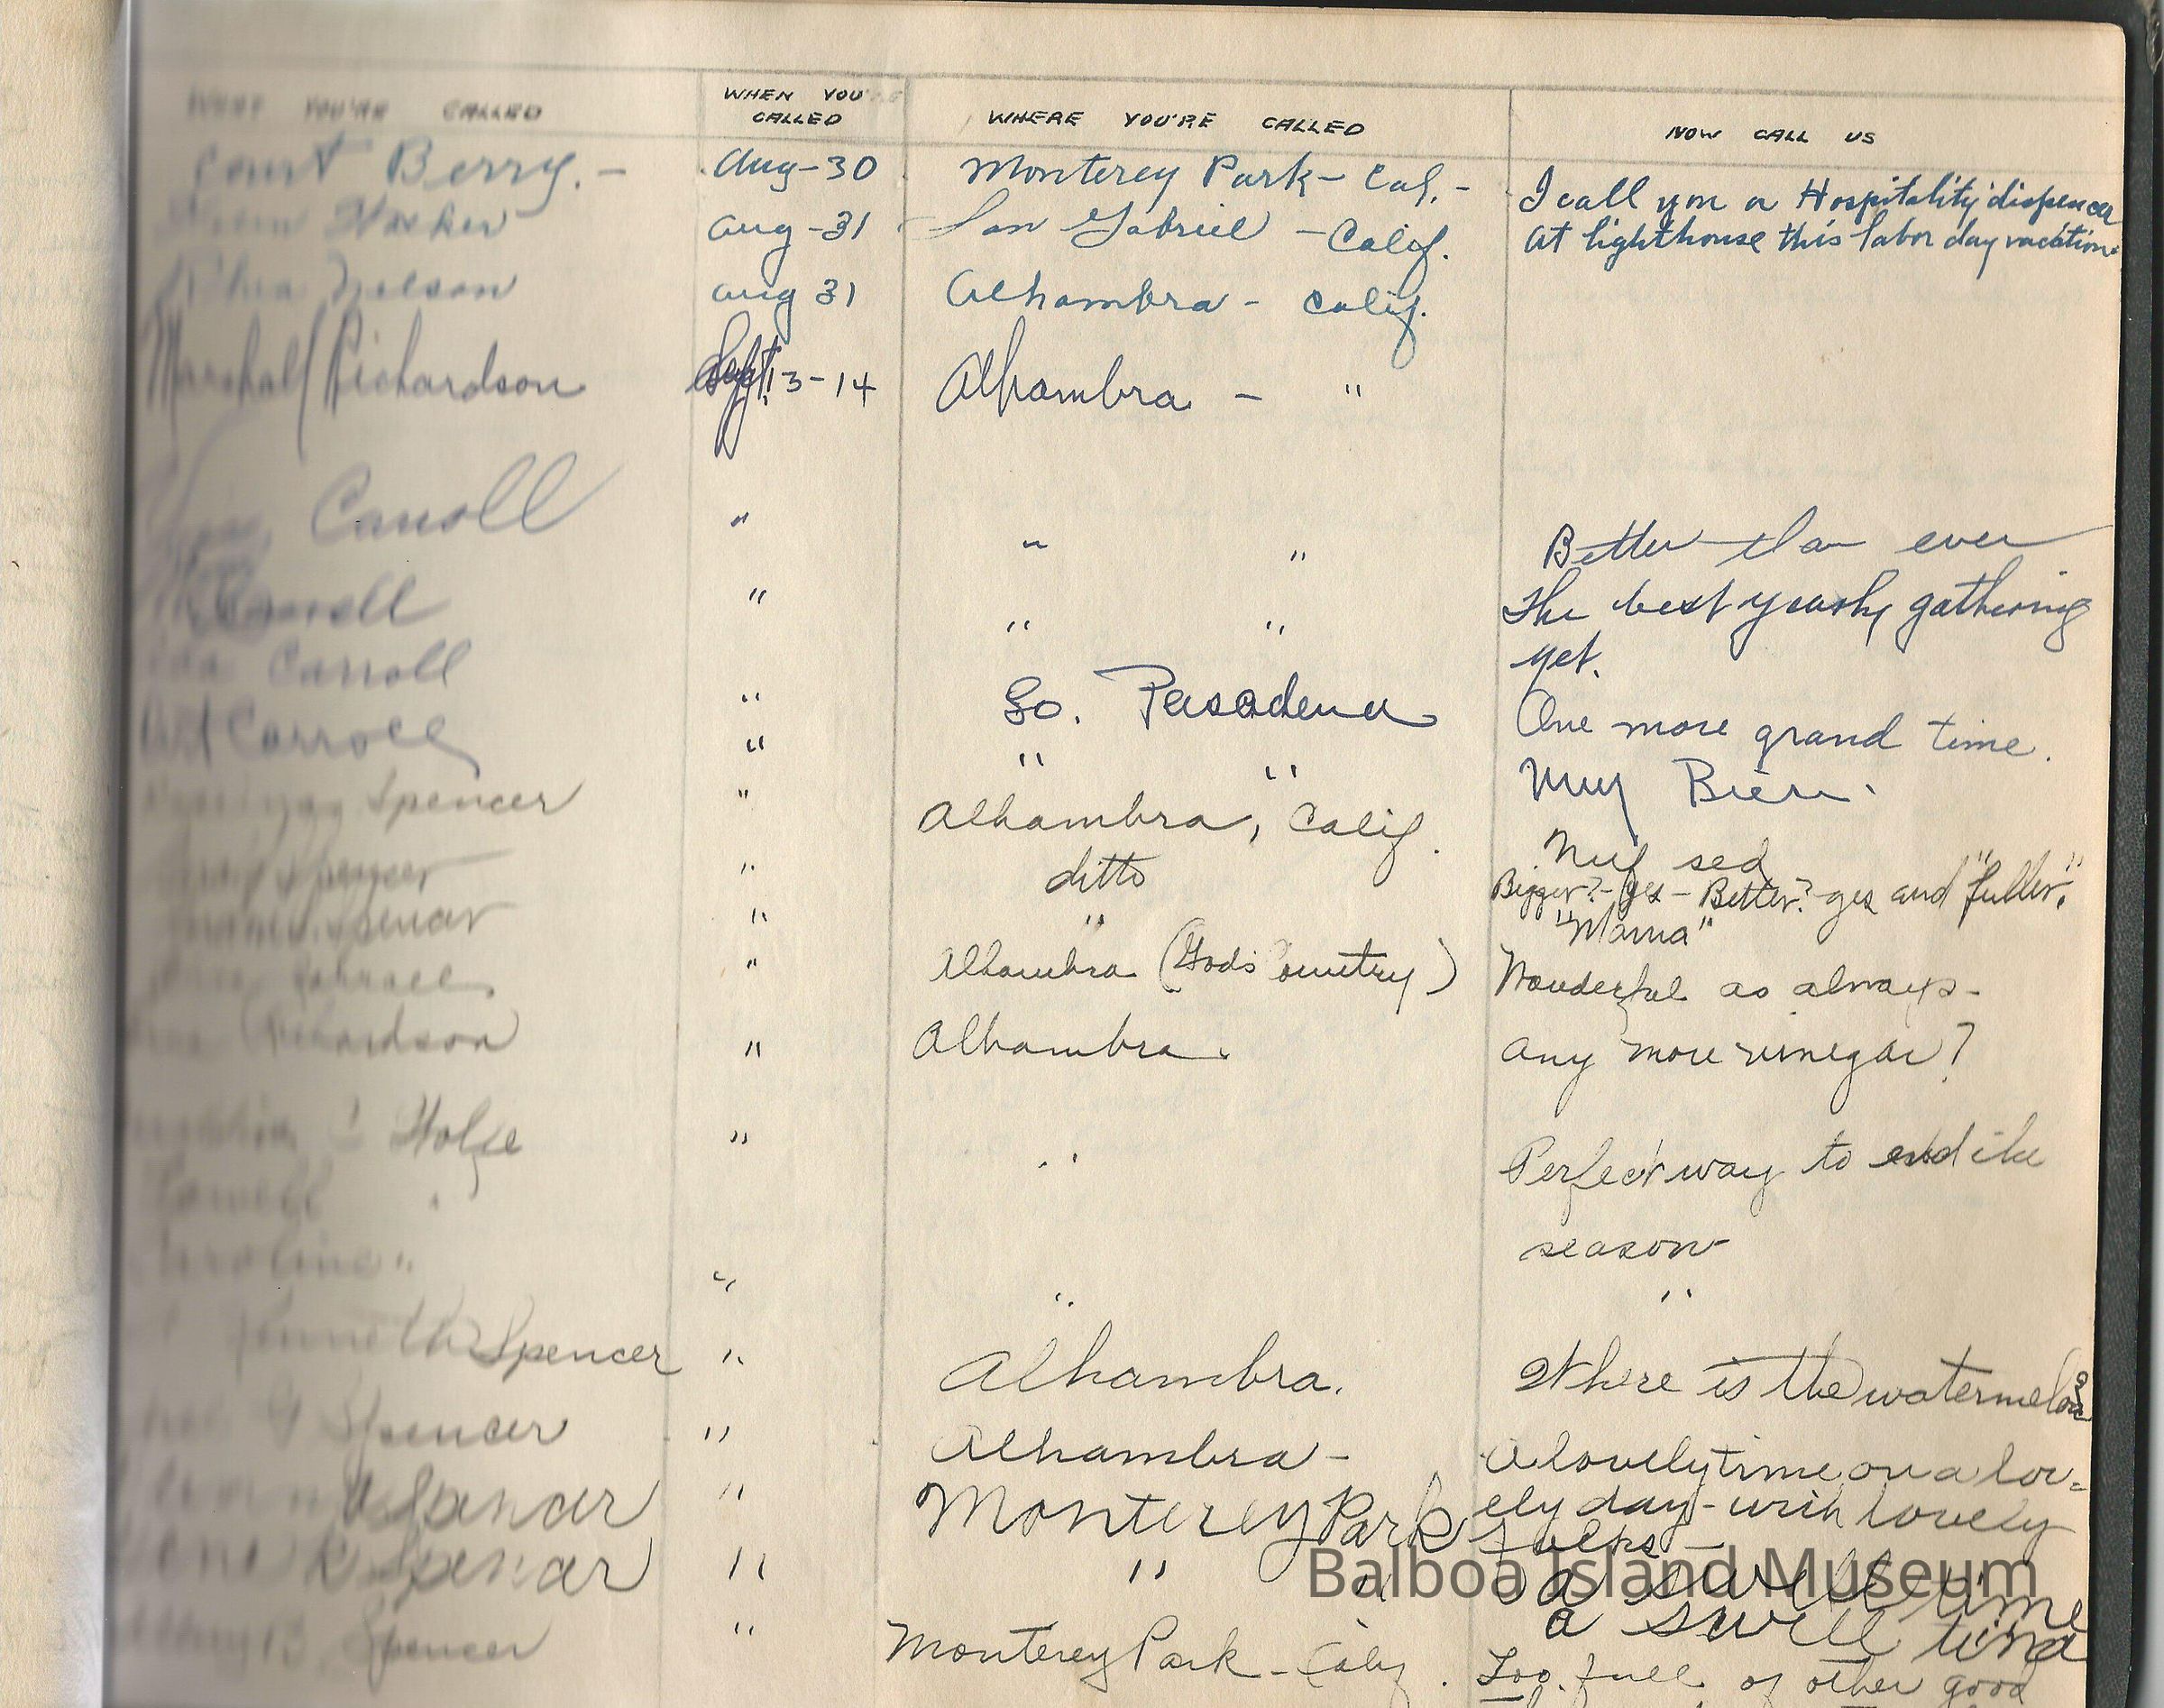 WHAT YOU'RE CALLED WHEN YOU'RE CALLED WHERE YOU'RE CALLED NOW CALL US
Court Berry.- Aug-30 Monterey Park- Cal.- I call you a Hospitality dispencer
Aug-31 San Gabriel - Calif. at lighthouse this labor day vacation.
Rhea Nelson Aug 31 Alhambra - Calif.
Marshall Richardson Sept. 13-14 Alhambra - "
Carroll " " " Better than ever
Carroll " " " The best yearly gathering
yet.
Ida Carroll " So. Pasadena One more grand time.
Art Carroll " " " Muy Bien.
Spencer " Alhambra, Calif. Nuf sed
Spencer " ditto Bigger?-yes-Better? yes and "fuller."
Spencer " " "Mama"
" Alhambra (God's Country) Wonderful as always-
Richardson " Alhambra. Any more vinegar?
" " Perfect way to end the
Lowell " season
Caroline " " " "
Kenneth Spencer " Alhambra. Where is the watermelon?
Spencer " Alhambra - A lovely time on a lov-
ely day - with lovely
folks -
Spencer " Monterey Park a swell time
Spencer " " " a swell time
Spencer " Monterey Park - Calif. Too full of other good
Balboa Island Museum